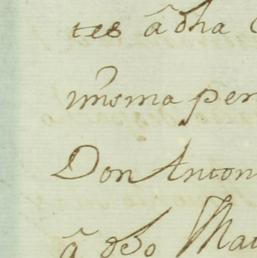 tes â dha
misma per
Don Anton
â dho Ma